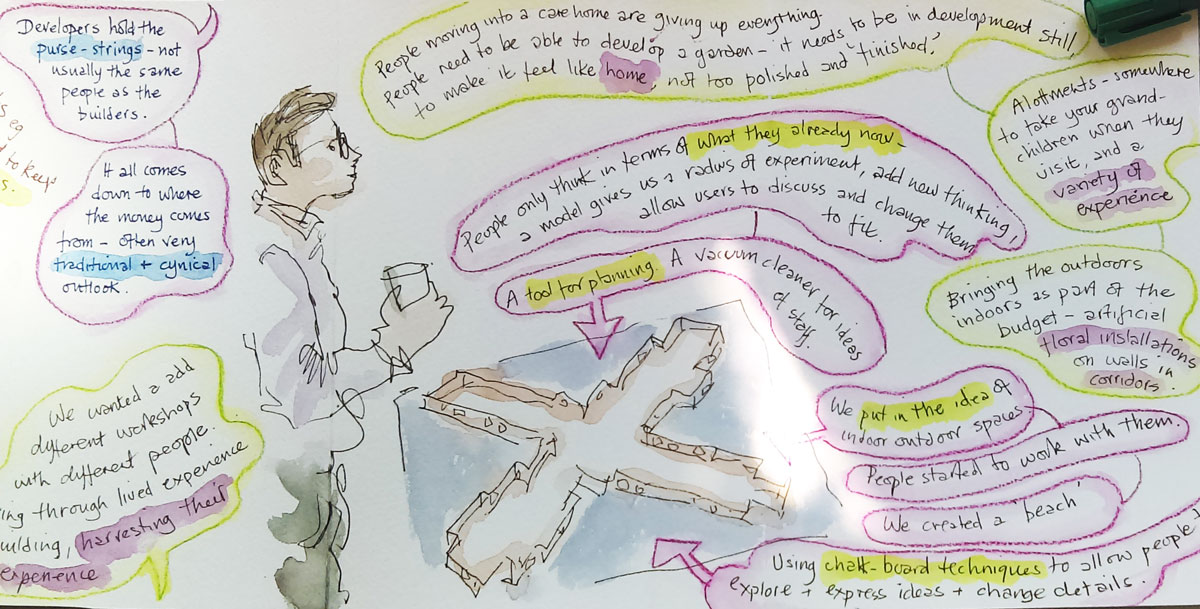 Developers hold the
purse-strings - not
usually the same
people as the
builders.
It all comes
down to where
the money comes
from - often very
traditional + cynical
outlook.
eg
to keep
People moving into a care home are giving up everything.
People need to be able to develop a garden - it needs to be in development still,
to make it feel like home, not too polished and 'finished'.
Alotments - somewhere
to take your grand-
children when they
visit, and a
variety of
experience
Bringing the outdoors
indoors as part of the
budget - artificial
floral installations
on walls in
corridors.
People only think in terms of what they already now -
a model gives us a radus of experiment, add new thinking,
allow users to discuss and change them
to fit.
A tool for planning. A vacuum cleaner for ideas
of staff.
We put in the idea of
indoor outdoor spaces.
People started to work with them.
We created a 'beach'
Using chalk-board techniques to allow people
explore + express ideas + change details.
We wanted a add
dyfferent workshops
with different people.
ing through lived experience
uilding, harvesting their
experience